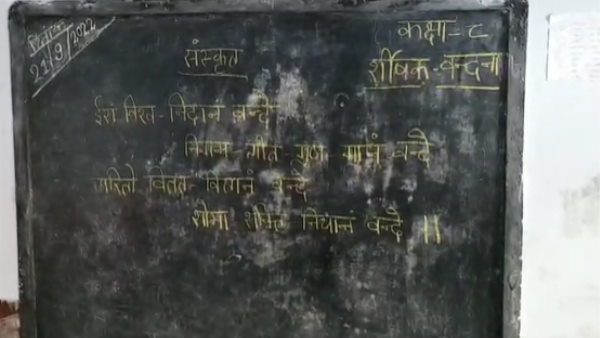 दिनांक
21/9/2022
संस्कृत
कक्षा - ८
शीर्षक - वन्दना
ईशं विश्व - निदानं वन्दे
निगम - गीत - गुण - गानं वन्दे
परितो वितत - वितानं वन्दे
शोभा शक्ति निधानं वन्दे ॥